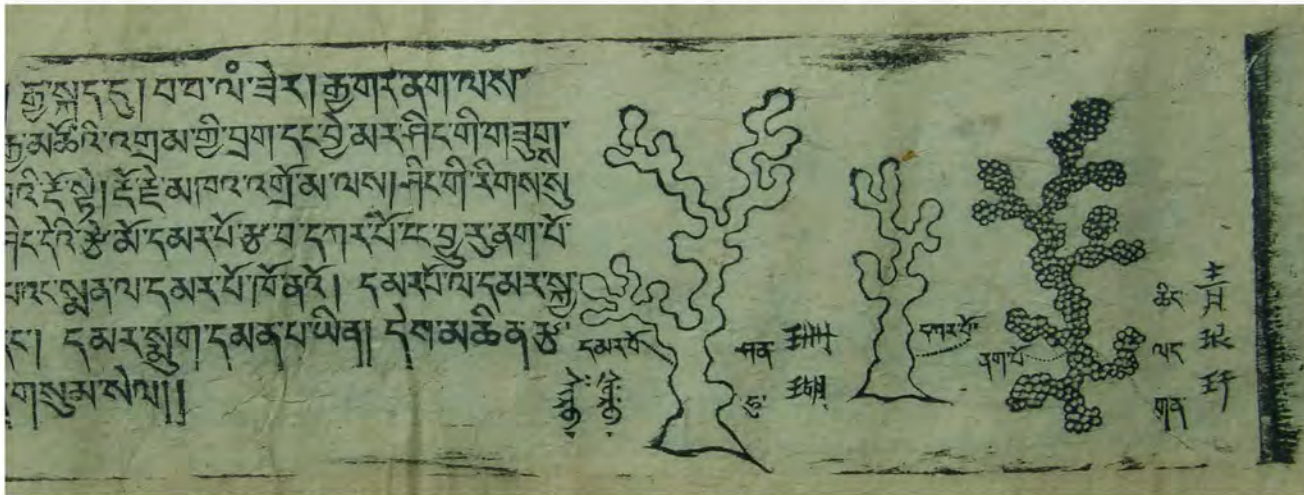 ། རྒྱ་སྐད་དུ། བ་བ་ལཾ་ཟེར། རྒྱ་གར་ནག་ལས་
རྒྱ་མཚོའི་འགྲམ་གྱི་བྲག་དང་བྱེ་མར་ཤིང་གི་གཟུགས་
པའི་རྡོ་སྟེ། རྡོ་རྗེ་མཁའ་འགྲོ་མ་ལས། ཤིང་གི་རིགས་སུ
ཤིང་དེའི་རྩེ་མོ་དམར་པོ་རྩ་བ་དཀར་པོ་ང་བྱུ་རུ་ནག་པོ་
བའང་སྨན་ལ་དམར་པོ་ཁོ་ནའོ། དམརབོ་ལ་དམར་སྐྱ་
དང་། དམར་སྨུག་དམན་པ་ཡིན། དེས་མཆིན་རྩ་
གསུམ་སེལ།།
དམར་པོ
ཤན 珊
ཧུ་ 瑚
དཀར་པོ་
ནག་པོ
ཆིང 青
ལང 琅
གན 玕